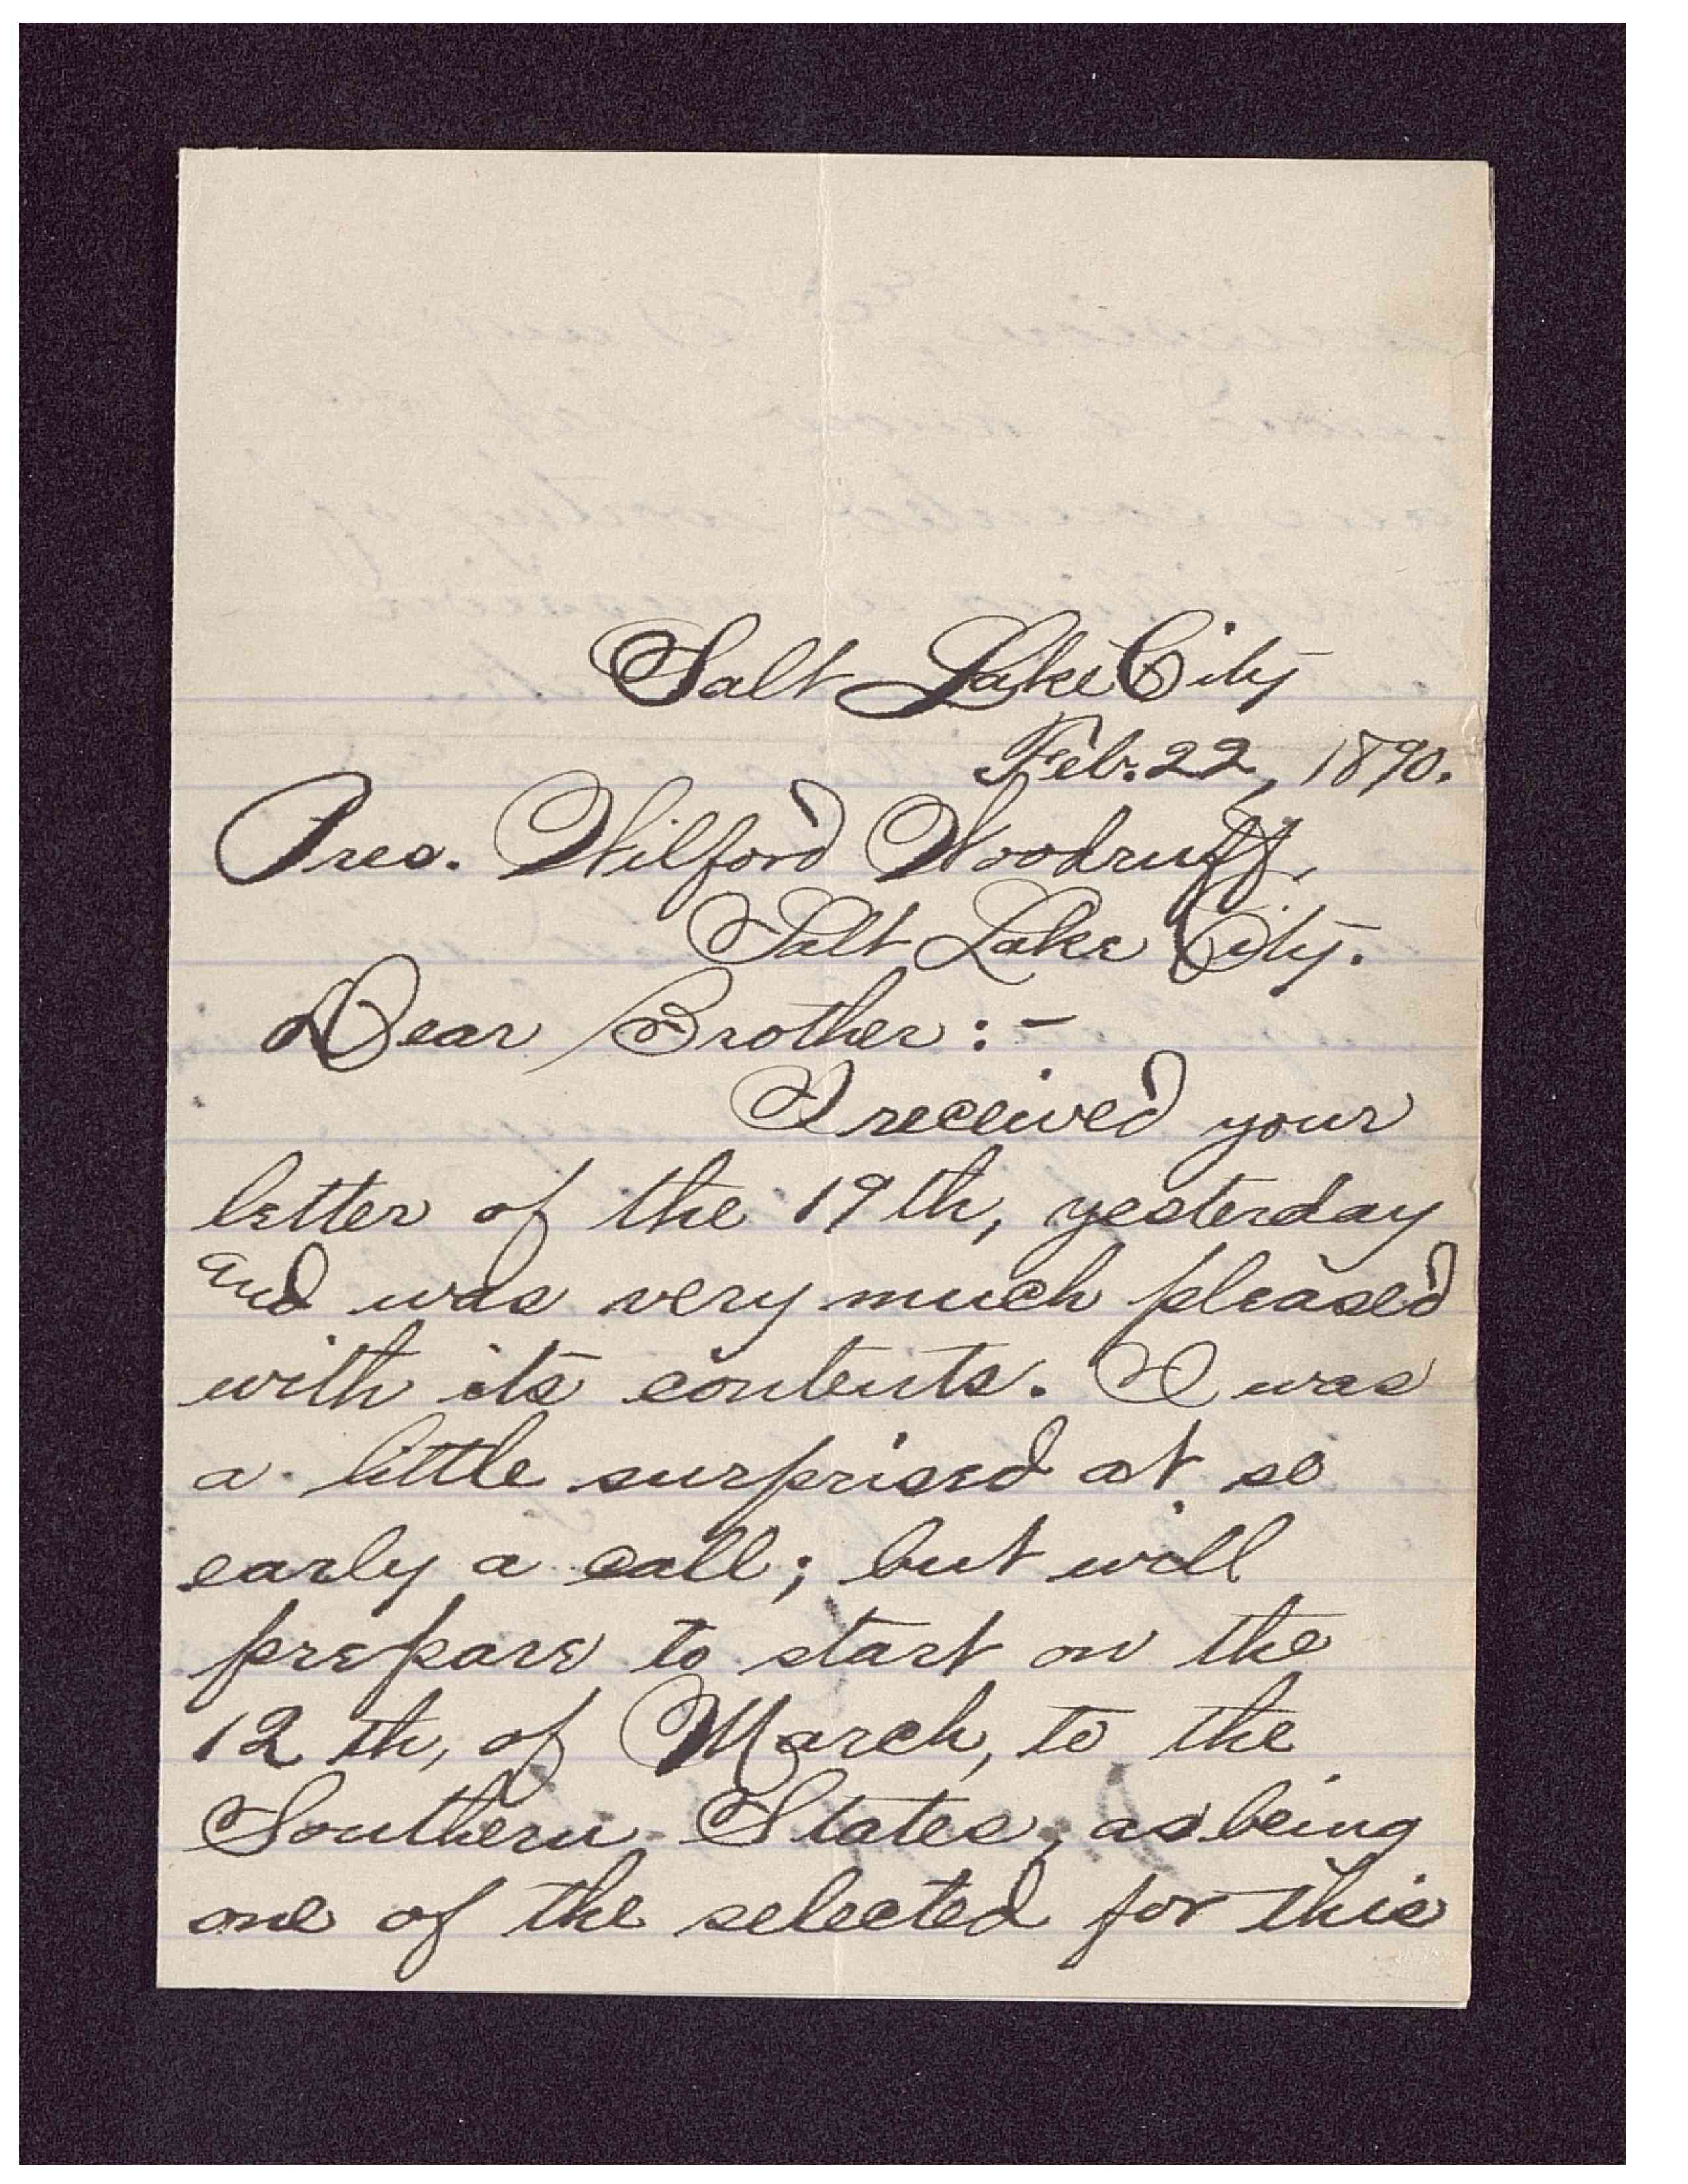 Salt Lake City
Feb. 22, 1890.
Pres. Wilford Woodruff,
Salt Lake City.
Dear Brother:-
I received your
letter of the 19th, yesterday
and was very much pleased
with its contents. I was
a little surprised at so
early a call; but will
prepare to start on the
12th, of March, to the
Southern States, as being
one of the selected for this